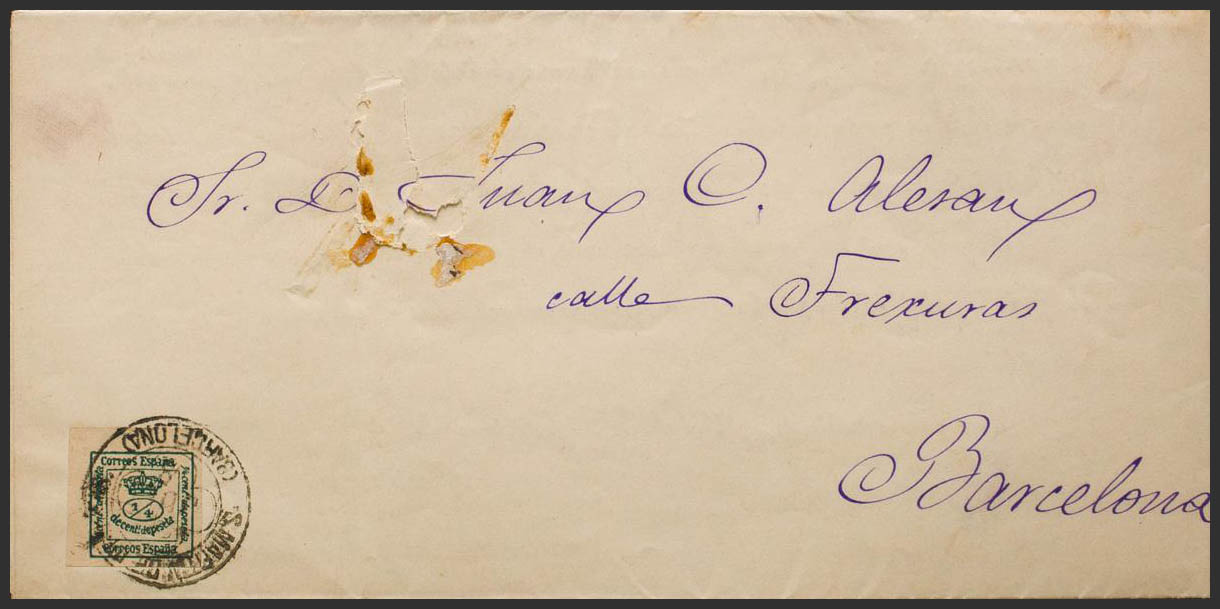 Sr. D. Juan C. Alesan
calle Frexuras
Barcelona
CORREOS ESPAÑA
1/4
de cent. de peseta
CORREOS ESPAÑA
(BARCELONA)